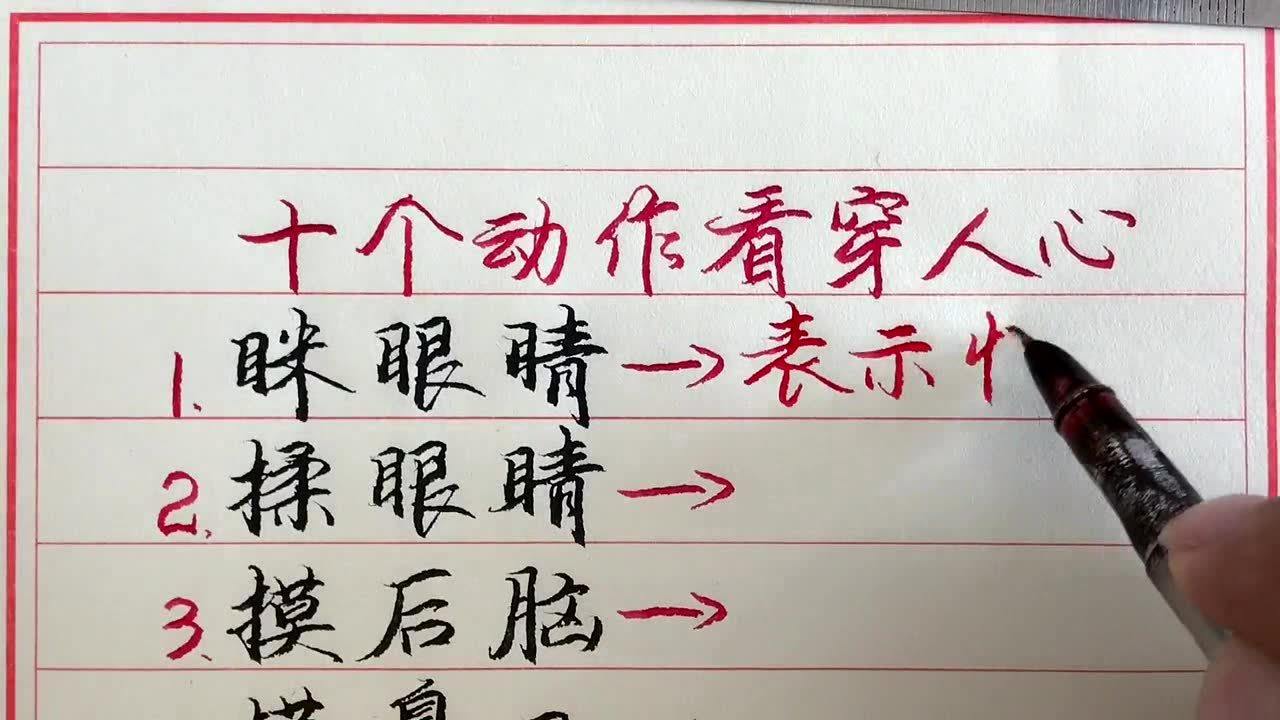 十个动作看穿人心
1. 眯眼睛→表示
2. 揉眼睛→
3. 摸后脑→